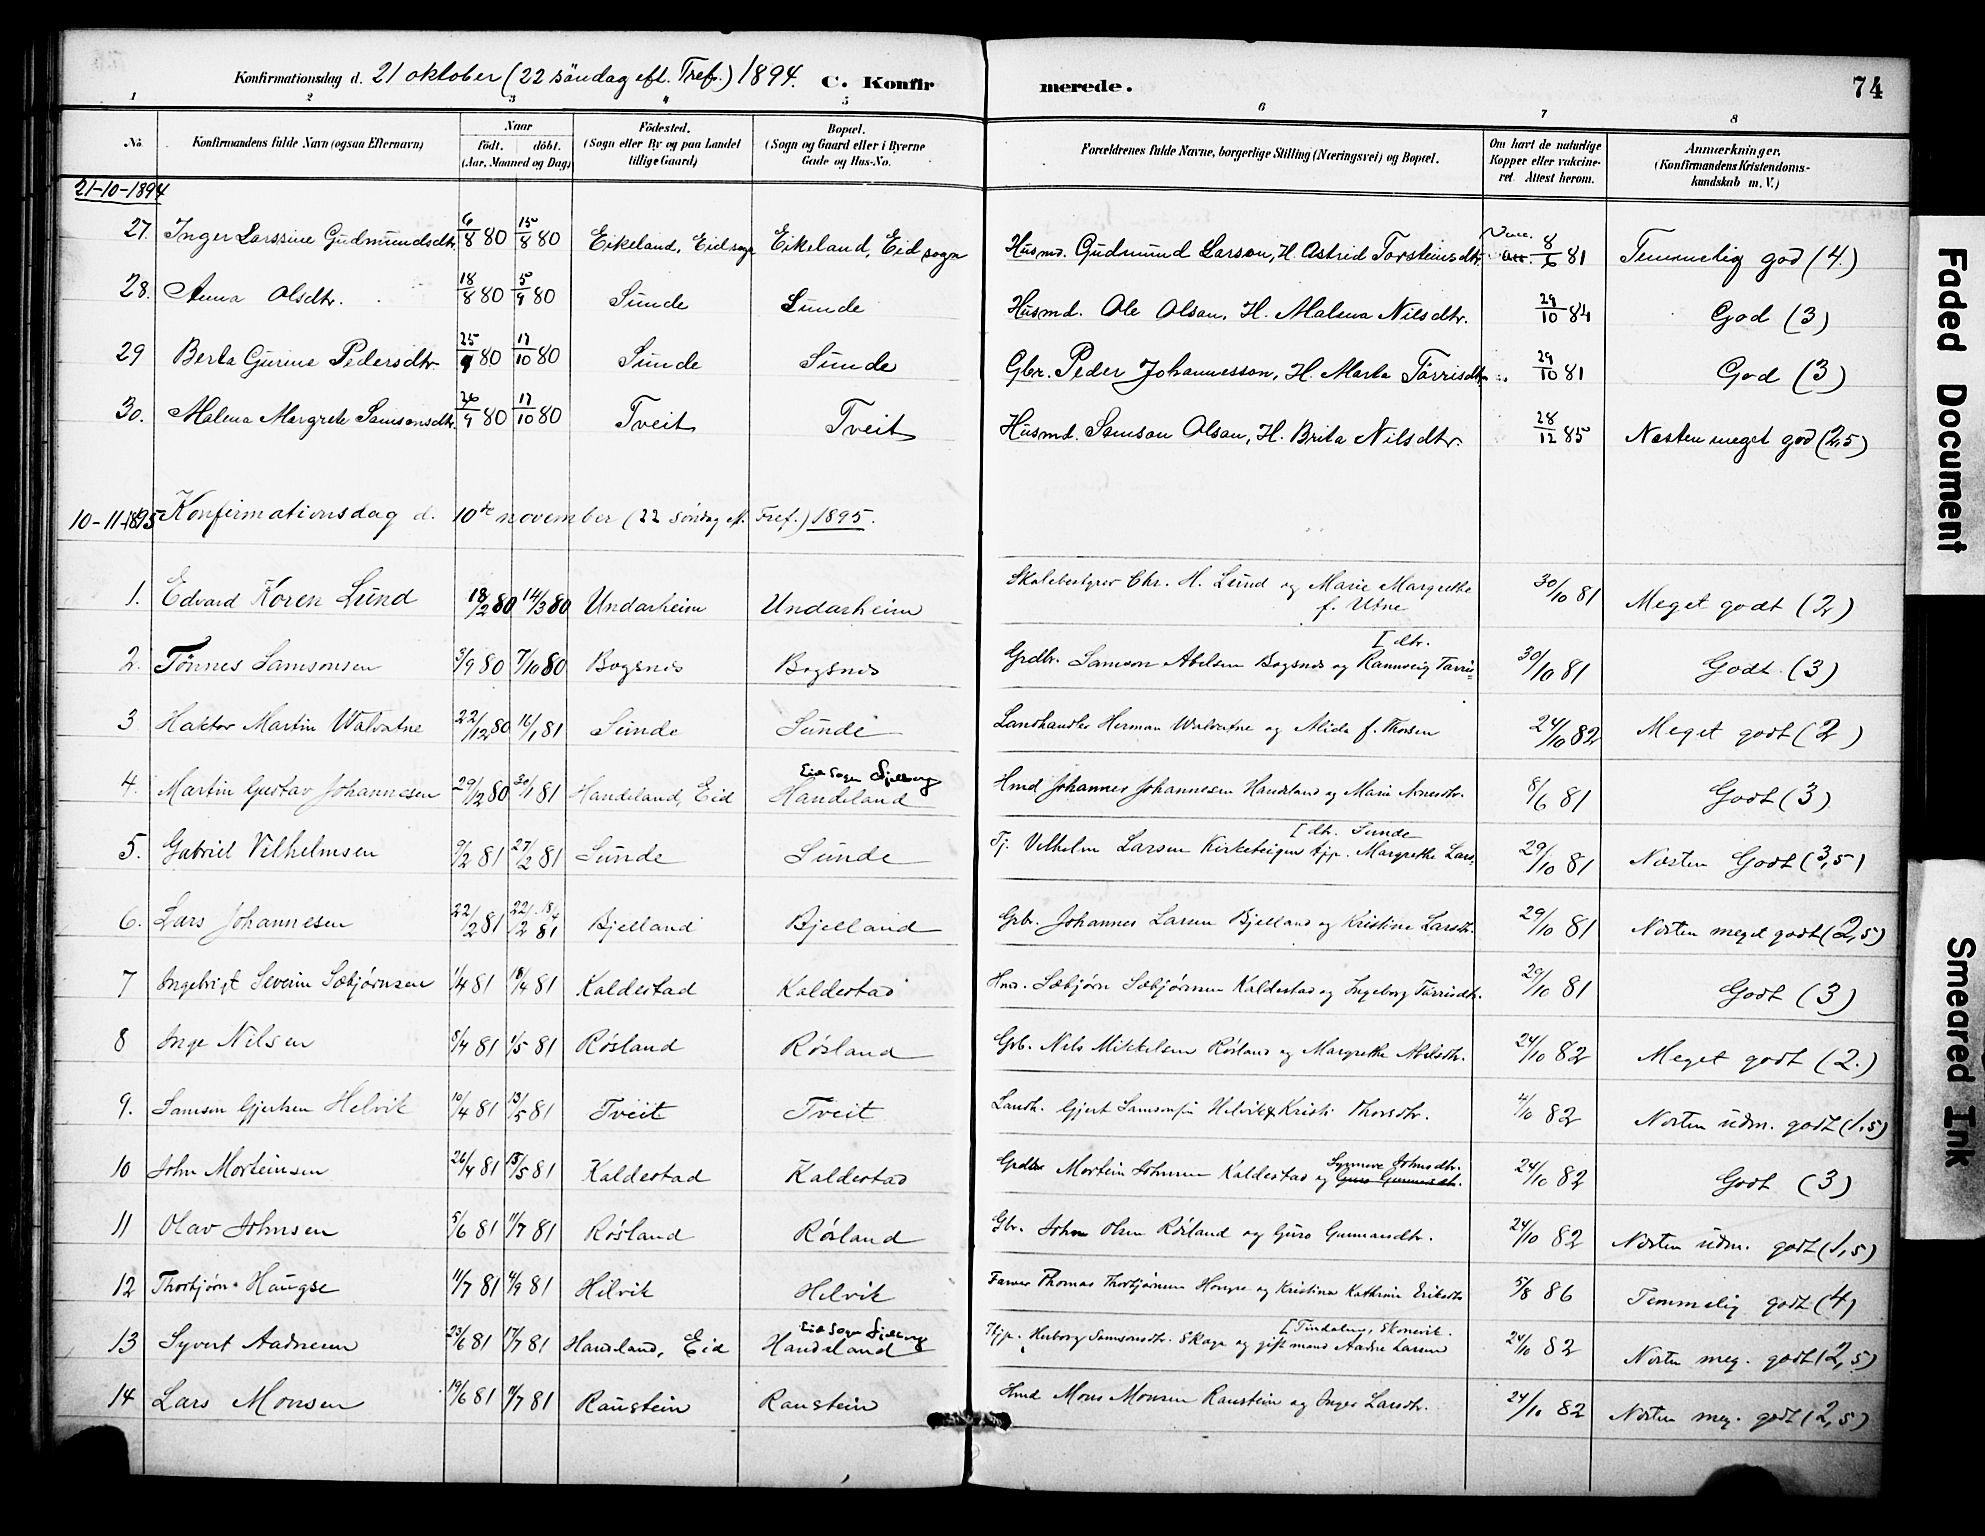 Konfirmationsdag d. 21 oktober (22 söndag eft. Tref.) 1894. C. Konfirmerede. 74
1 2 3 4 5 6 7 8
No. Konfirmandens fulde Navn (ogsaa Efternavn) Naar födt. döbt. (Aar, Maaned og Dag) Födested. (Sogn eller By og paa Landet tillige Gaard) Bopæl. (Sogn og Gaard eller i Byerne Gade og Hus-No. Forældrenes fulde Navne, borgerlige Stilling (Næringsvei) og Bopæl. Om havt de naturlige Kopper eller vaccineret. Attest herom. Anmærkninger, (Konfirmandens Kristendomskundskab m. V.)
21-10-1894
27. Inger Larssine Gudmundsdtr. 6/8 80 15/8 80 Eikeland, Eid sogn Eikeland, Eid sogn Husmd. Gudmund Larson, H. Astrid Torsteinsdtr. Vacc. att. 8/6 81 Temmelig god (4.)
28. Anna Olsdtr. 18/8 80 5/9 80 Sunde Sunde Husmd. Ole Olson, H. Malena Nilsdtr. 29/10 84 God (3)
29 Berta Gurine Pedersdtr. 25/9 80 17/10 80 Sunde Sunde Gbr. Peder Johannesson, H. Marta Törrisdtr. 29/10 81 God (3)
30. Malena Margrete Samsonsdtr. 26/9 80 17/10 80 Tveit Tveit Husmd. Samson Olson, H. Brita Nilsdtr. 28/12 85 Næsten meget god (2,5)
10-11-1895 Konfirmationsdag d. 10de november (22 söndag ef. Tref.) 1895.
1. Edvard Koren Lund 18/2 80 14/3 80 Undarheim Undarheim Skolebestyrer Chr. H. Lund og Marie Margrethe f. Utne 30/10 81 Meget godt (2)
2. Tønnes Samsonsen 3/9 80 7/10 80 Bogsnes Bogsnes Grdbr. Samson Abelsen Bogsnes og Rannveig Tørris= [dtr. 30/10 81 Godt. (3)
3 Haktor Martin Walvatne 22/12 80 16/1 81 Sunde Sunde Landhandler Herman Walvatne og Alida f. Thorsen 24/10 82 Meget godt (2)
4. Martin Gustav Johannesen 29/12 80 30/1 81 Handeland, Eid Eid sogn Fjelberg Handeland Hmd Johannes Johannesen Handeland og Marie Arnesdtr. 8/6 81 Godt (3)
5. Gabriel Vilhelmsen 9/2 81 27/2 81 Sunde Sunde Tj. Vilhelm Larsen Kirketeigen tjp. Margrethe Lars. [dtr. Sunde 29/10 81 Næsten Godt (3,5)
6. Lars Johannesen 22/2 81 22/2 18/4 81 Bjelland Bjelland Grb. Johannes Larsen Bjelland og Kristine Larsdtr. 29/10 81 Næsten meget godt (2,5)
7 Ingebrigt Severin Sæbjørnsen 1/4 81 18/4 81 Kaldestad Kaldestad Hmd. Sæbjørn Sæbjørnsen Kaldestad og Ingeborg Tørrisdtr. 29/10 81 Godt (3)
8 Inge Nilsen 5/4 81 1/5 81 Røsland Røsland Grb. Nils Mikkelsen Røsland og Margrethe Abelsdtr. 24/10 82 Meget godt (2.)
9. Samson Gjertsen Helvik 10/4 81 13/5 81 Tveit Tveit Landh. Gjert Samson Helvik & Kristi Thorsdtr. 4/10 82 Næsten udm. godt (1,5)
10 John Morteinsen 26/4 81 15/5 81 Kaldestad Kaldestad Grdbr Mortein Johnsen Kaldestad og Guro Gunnarsdt. Synneve Johnsdtr. 24/10 82 Godt (3)
11 Olav Johnsen 5/6 81 11/7 81 Røsland Røsland Gbr. John Olsen Røsland og Guro Gunnarsdtr. 24/10 82 Næsten udm. godt (1,5)
12 Thorbjørn Haugse 11/7 81 4/9 81 Helvik Helvik Farver Thomas Thorbjørnsen Haugse og Kristine Kathrine Eriksdtr 5/8 86 Temmelig godt (4)
13 Syvert Aadnesen 23/6 81 17/7 81 Handeland, Eid Eid sogn Fjelberg Handeland Tjp. Herborg Samsonsdtr. Skaga og gift mand Aadne Larsen [Tindalen, Skonevik. 24/10 82 Næsten meg. godt (2,5)
14 Lars Monsen 19/6 81 11/7 81 Raustein Raustein Hmd Mons Monsen Raustein og Inger Larsdtr. 24/10 82 Næsten meg. godt (2,5)
Faded Document
Smeared Ink